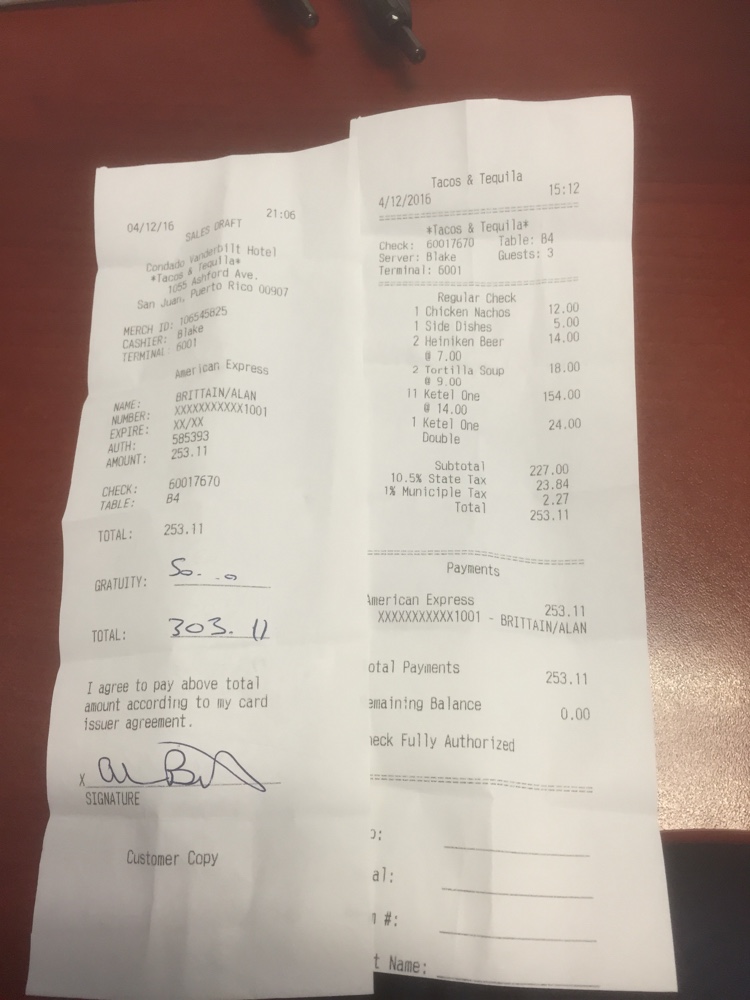 04/12/16 21:06
SALES DRAFT
Condado Vanderbilt Hotel
*Tacos & Tequila*
1055 Ashford Ave.
San Juan, Puerto Rico 00907
MERCH ID: 106545825
CASHIER: Blake
TERMINAL: 6001
American Express
NAME: BRITTAIN/ALAN
NUMBER: XXXXXXXXXXX1001
EXPIRE: XX/XX
AUTH: 585393
AMOUNT: 253.11
CHECK: 60017670
TABLE: B4
TOTAL: 253.11
GRATUITY: 50. 0
TOTAL: 303.11
I agree to pay above total
amount according to my card
issuer agreement.
X
SIGNATURE
Customer Copy
Tacos & Tequila
4/12/2016 15:12
*Tacos & Tequila*
Check: 60017670 Table: B4
Server: Blake Guests: 3
Terminal: 6001
Regular Check
1 Chicken Nachos 12.00
1 Side Dishes 5.00
2 Heiniken Beer 14.00
@ 7.00
2 Tortilla Soup 18.00
@ 9.00
11 Ketel One 154.00
@ 14.00
1 Ketel One 24.00
Double
Subtotal 227.00
10.5% State Tax 23.84
1% Municiple Tax 2.27
Total 253.11
Payments
American Express 253.11
XXXXXXXXXXX1001 - BRITTAIN/ALAN
otal Payments 253.11
emaining Balance 0.00
heck Fully Authorized
o:
al:
#:
t Name: